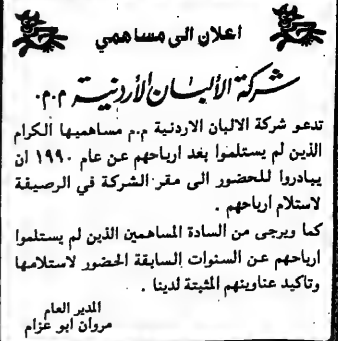 اعلان الى مساهمي
شركة الألبان الأردنية م.م.
تدعو شركة الالبان الاردنية م.م مساهميها الكرام
الذين لم يستلموا بعد ارباحهم عن عام ١٩٩٠ ان
يبادروا للحضور الى مقر الشركة في الرصيفة
لاستلام ارباحهم .
كما ويرجى من السادة المساهمين الذين لم يستلموا
ارباحهم عن السنوات السابقة الحضور لاستلامها
وتاكيد عناوينهم المثبتة لدينا .
المدير العام
مروان ابو عزام